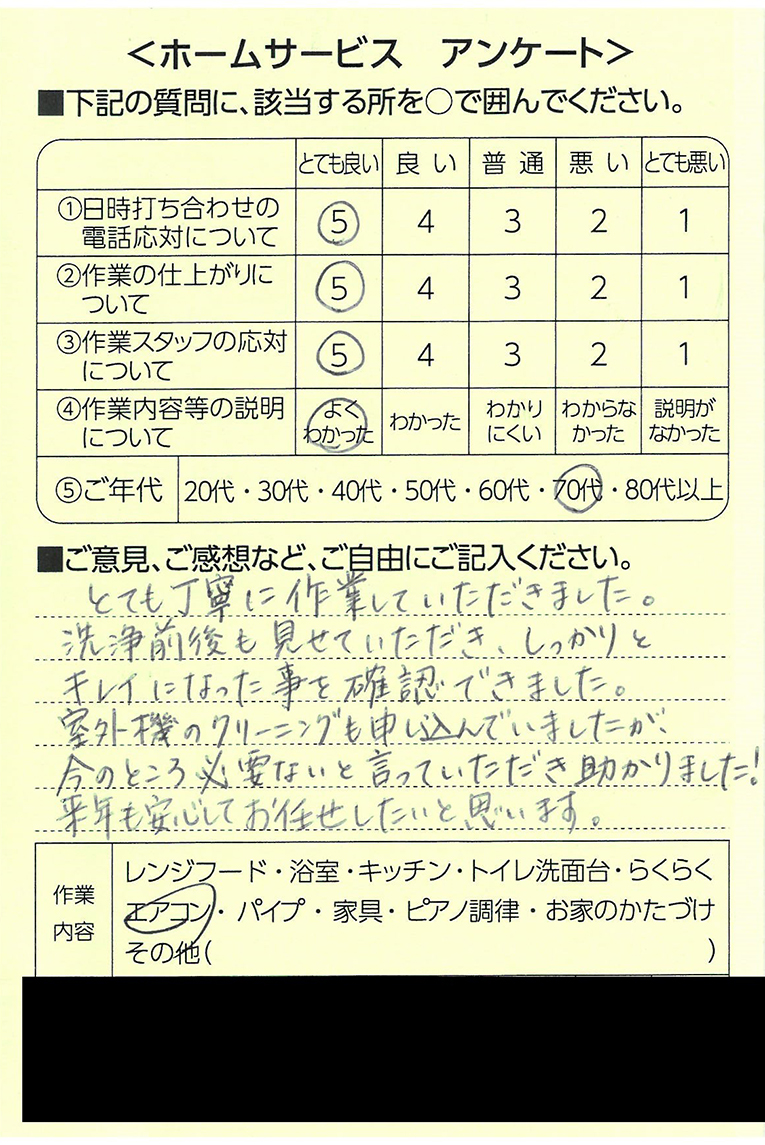 ＜ホームサービス　アンケート＞
■下記の質問に、該当する所を○で囲んでください。
とても良い　良い　普通　悪い　とても悪い
①日時打ち合わせの電話応対について　5　4　3　2　1
②作業の仕上がりについて　5　4　3　2　1
③作業スタッフの応対について　5　4　3　2　1
④作業内容等の説明について　よくわかった　わかった　わかりにくい　わからなかった　説明がなかった
⑤ご年代　20代・30代・40代・50代・60代・70代・80代以上
■ご意見、ご感想など、ご自由にご記入ください。
とても丁寧に作業していただきました。
洗浄前後も見せていただき、しっかりと
キレイになった事を確認できました。
室外機のクリーニングも申し込んでいましたが、
今のところ必要ないと言っていただき助かりました!
来年も安心してお任せしたいと思います。
作業内容
レンジフード・浴室・キッチン・トイレ洗面台・らくらく
エアコン・パイプ・家具・ピアノ調律・お家のかたづけ
その他(　)